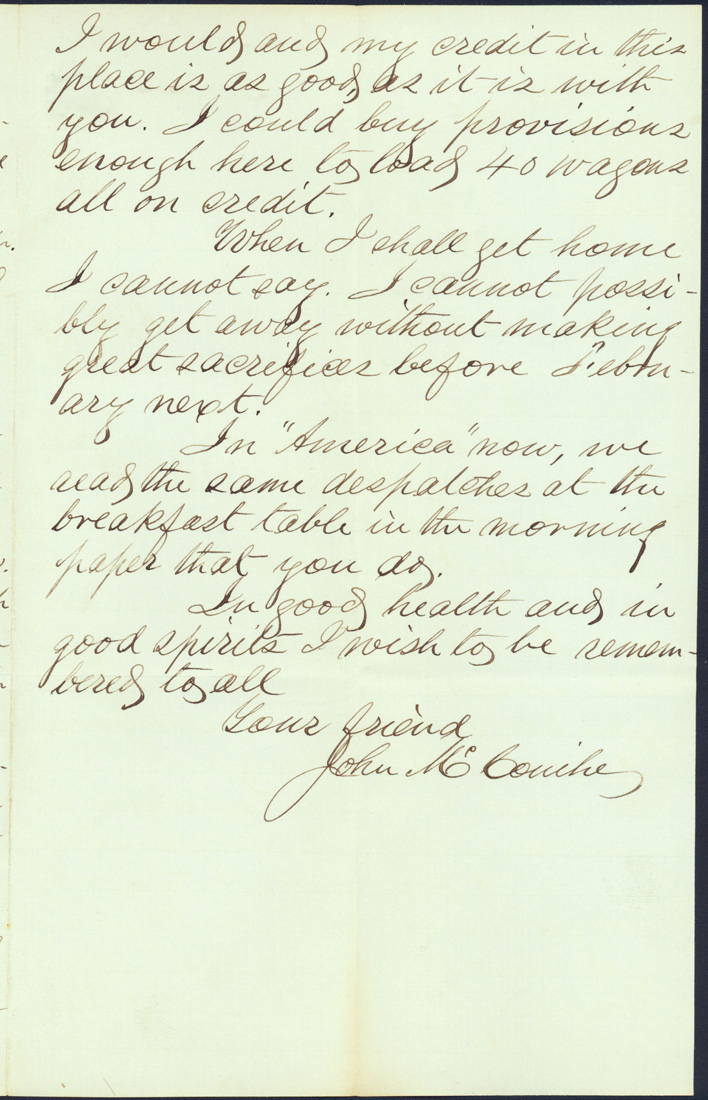 I would and my credit in this
place is as good, as it is with
you. I could buy provisions
enough here to load 40 wagons
all on credit.
When I shall get home
I cannot say. I cannot possi-
bly get away without making
great sacrifices before Febru-
ary next.
In "America" now, we
read the same despatches at the
breakfast table in the morning
paper that you do.
In good health and in
good spirits I wish to be remem-
bered to all
Your friend
John McConihe